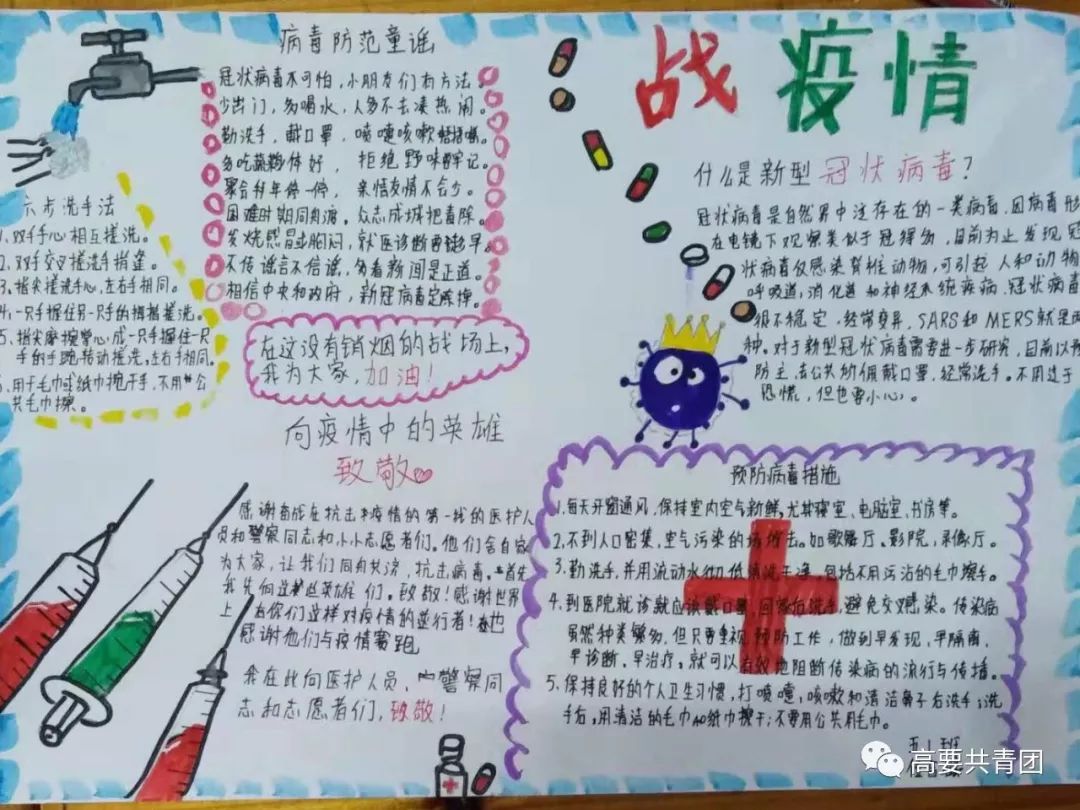 战疫情
病毒防范童谣
冠状病毒不可怕,小朋友们有方法。
少出门,多喝水,人多不去凑热闹。
勤洗手,戴口罩,喷嚏咳嗽捂捂嘴。
多吃蔬 体好,拒绝野味牢记。
聚会拜年停一停,亲情友情不会少。
困难时期同舟渡。众志成城把毒除。
发烧感冒或胸闷,就医诊断要趁早。
不传谣言不信谣,多看新闻是正道。
相信中央和政府,新冠病毒定 掉。
六步洗手法
1、双手手心相互搓洗。
2、双手交叉搓洗手指缝。
3、指尖搓洗手心,左右手相同。
4、一只手握住另一只手的拇指搓洗。
5、指尖摩擦掌心,或一只手握住一只
手的手腕转动搓洗,左右手相同。
6、用干毛巾或纸巾擦干手,不用 公
共毛巾擦。
在这没有销烟的战场上,
我为大家,加油!
向疫情中的英雄
致敬
感谢奋战在抗击疫情的第一线的医护人
员和警察同志和小小志愿者们。他们舍自家
为大家,让我们同舟共济,抗击病毒。首先
我先向这些英雄们。致敬!感谢世界
上 有你们这样对疫情的逆行者! 也
感谢他们与疫情赛跑
我在此向医护人员、警察同
志和志愿者们,致敬!
什么是新型冠状病毒?
冠状病毒是自然界中泛存在的一类病毒,因病毒形
在电镜下观察类似于冠得名,目前为止发现冠
状病毒仅感染脊椎动物,可引起人和动物
呼吸道,消化道和神经系统疾病,冠状病毒
很不稳定,经常变异,SARS和MERS就是两
种。对于新型冠状病毒需要进一步研究,目前以预
防主,去公共场佩戴口罩,经常洗手。不用过于
恐慌,但也要小心。
预防病毒措施
1、每天开窗通风,保持室内空气新鲜,尤其寝室、电脑室、书房等。
2、不到人口密集,空气污染的场所去。如歌舞厅、影院,录像厅。
3、勤洗手,并用流动水彻 低清洗干净,包括不用污沾的毛巾擦手。
4、到医院就诊就应该戴口罩,回家后洗手,避免交叉感染。传染病
虽然种类繁多,但只要重视预防工作,做到早发现,早隔离,
早诊断、早治疗。就可以有效地阻断传染病的流行与传播。
5、保持良好的个人卫生习惯,打喷嚏,咳嗽和清洁鼻子后洗手;洗
手后,用清洁的毛巾和纸巾擦干;不要用公共用毛巾。
五1班
高要共青团